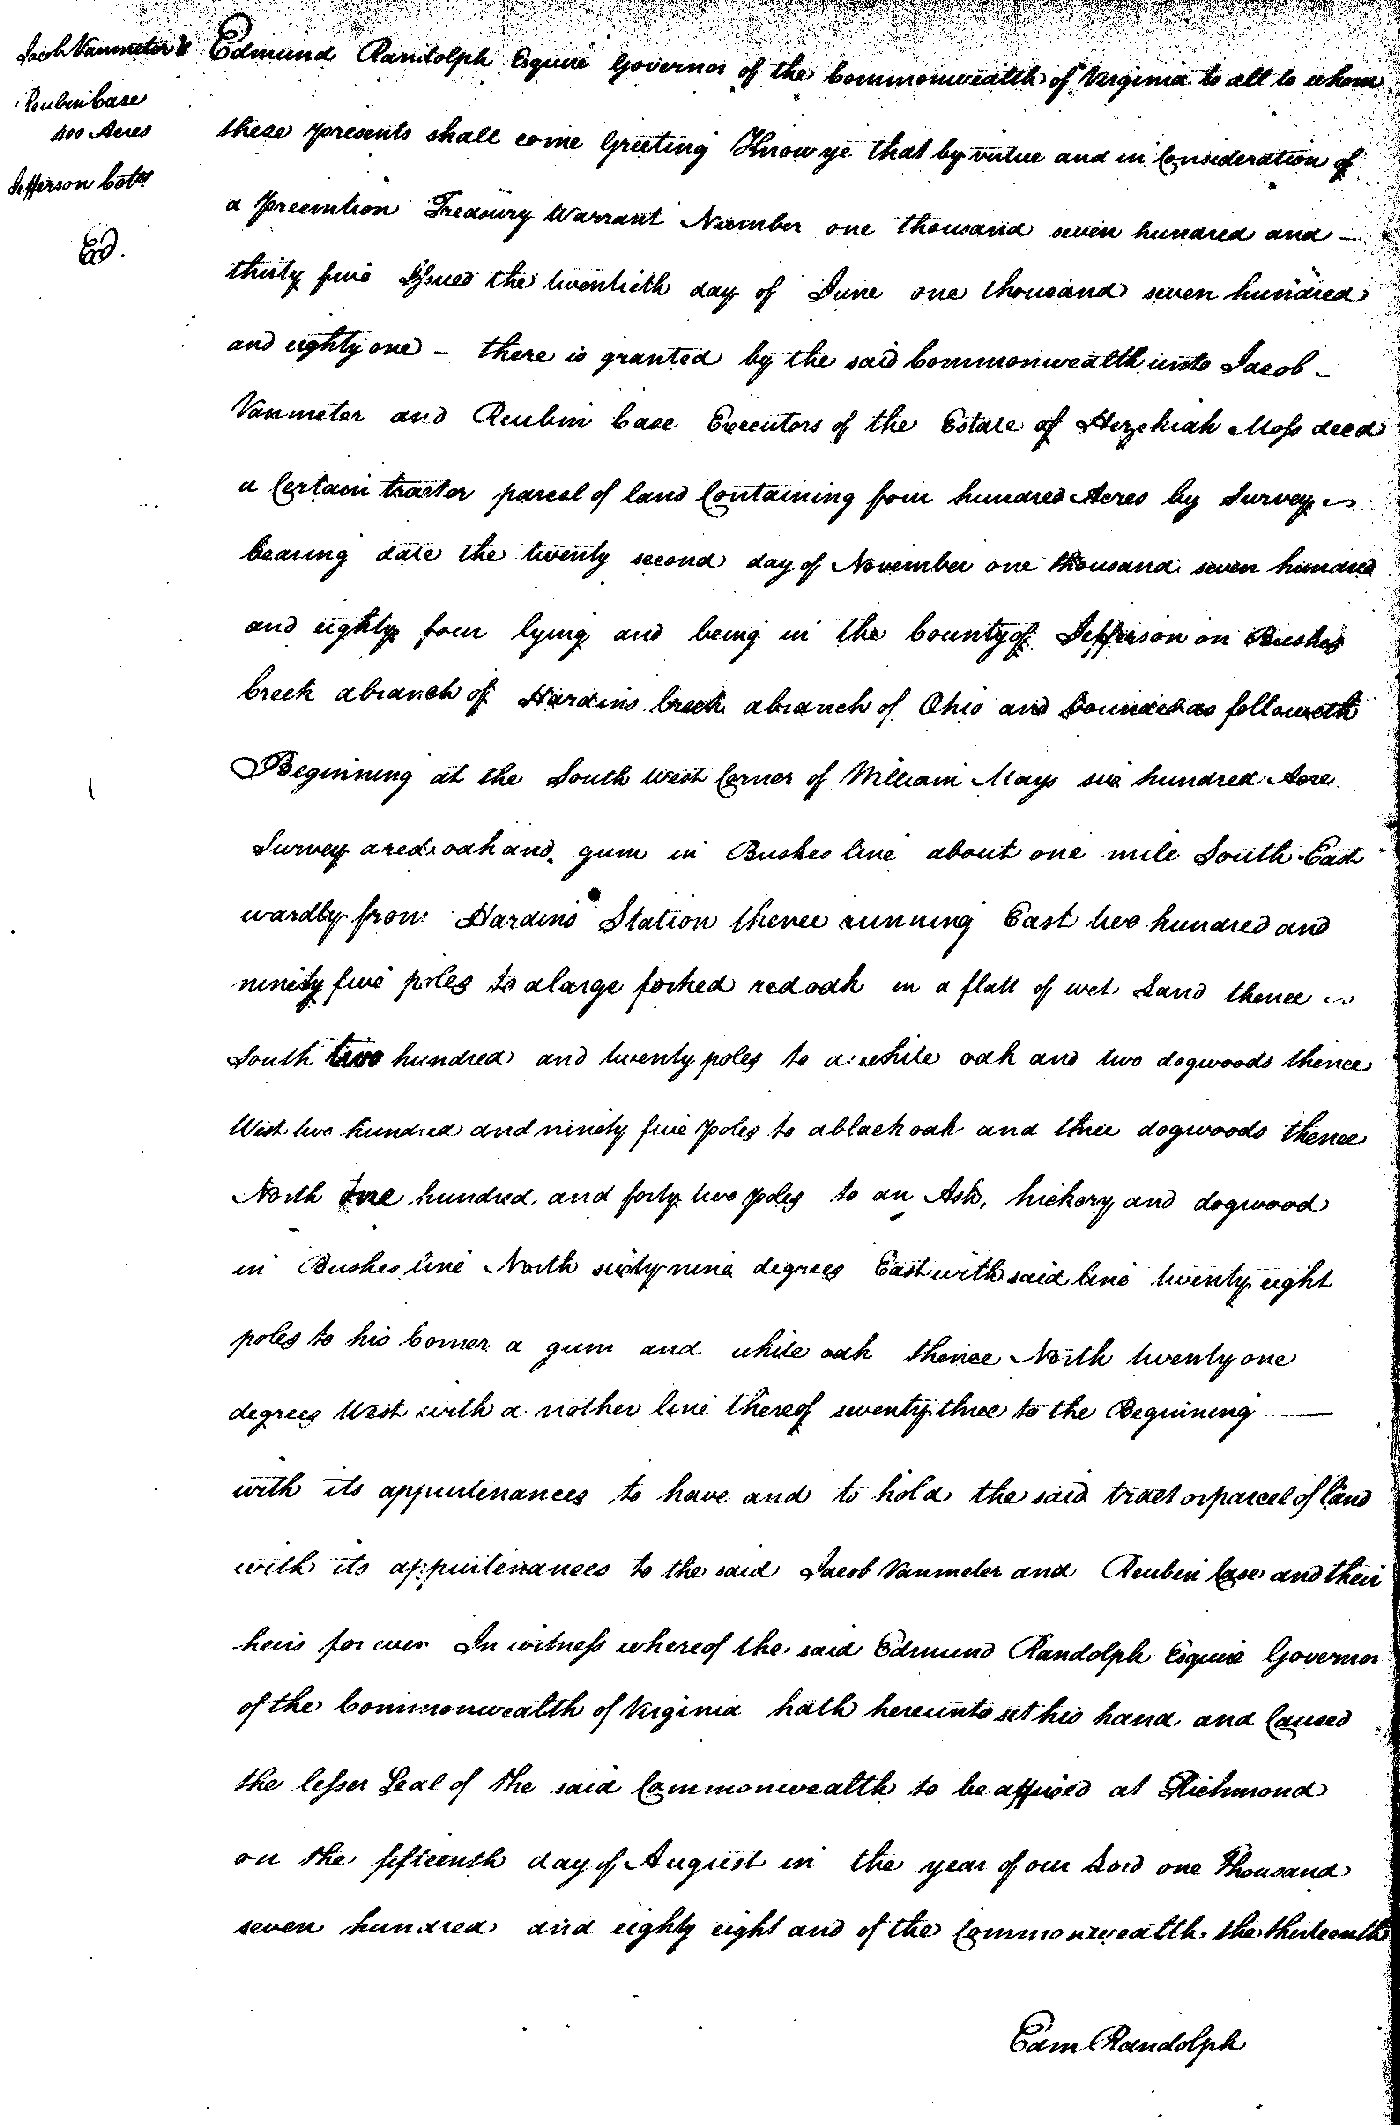 Jacob Vanmeter &
Reubin Case
400 Acres
Jefferson Coty
Ed.
Edmund Randolph Esquire Governor of the Commonwealth of Virginia to all to whom
these presents shall come Greeting Know ye that by virtue and in Consideration of
a Preemtion Treasury Warrant Number one thousand seven hundred and —
thirty five Issued the twentieth day of June one thousand seven hundred
and eighty one – there is granted by the said Commonwealth unto Jacob –
Vanmeter and Reubin Case Executors of the Estate of Hezekiah Moss decd
a Certain tract or parcel of land Containing four hundred Acres by Survey
bearing date the twenty second day of November one thousand seven hundred
and eighty four lying and being in the County of Jefferson on Bushes
Creek a branch of Hardins Creek a branch of Ohio and bounded as followeth
Beginning at the South West Corner of William Mays six hundred Acre
Survey a red oak and gum in Bushes line about one mile South East
wardly from Hardins Station thence running East two hundred and
ninety five poles to a large forked red oak in a flatt of wet Land thence
South two hundred and twenty poles to a white oak and two dogwoods thence
West two hundred and ninety five poles to a black oak and three dogwoods thence
North one hundred and forty two poles to an Ash, hickory and dogwood
in Bushes line North sixty nine degrees East with said line twenty eight
poles to his Corner a gum and white oak thence North twenty one
degrees West with a nother line thereof seventy three to the Beginning —
with its appurtenances to have and to hold the said tract or parcel of land
with its appurtenances to the said Jacob Vanmeter and Reubin Case and their
heirs for ever In witness whereof the said Edmund Randolph Esquire Governor
of the Commonwealth of Virginia hath hereunto set his hand and Caused
the lesser Seal of the said Commonwealth to be affixed at Richmond
on the fifteenth day of August in the year of our Lord one Thousand
seven hundred and eighty eight and of the Commonwealth the thirteenth
Edm Randolph